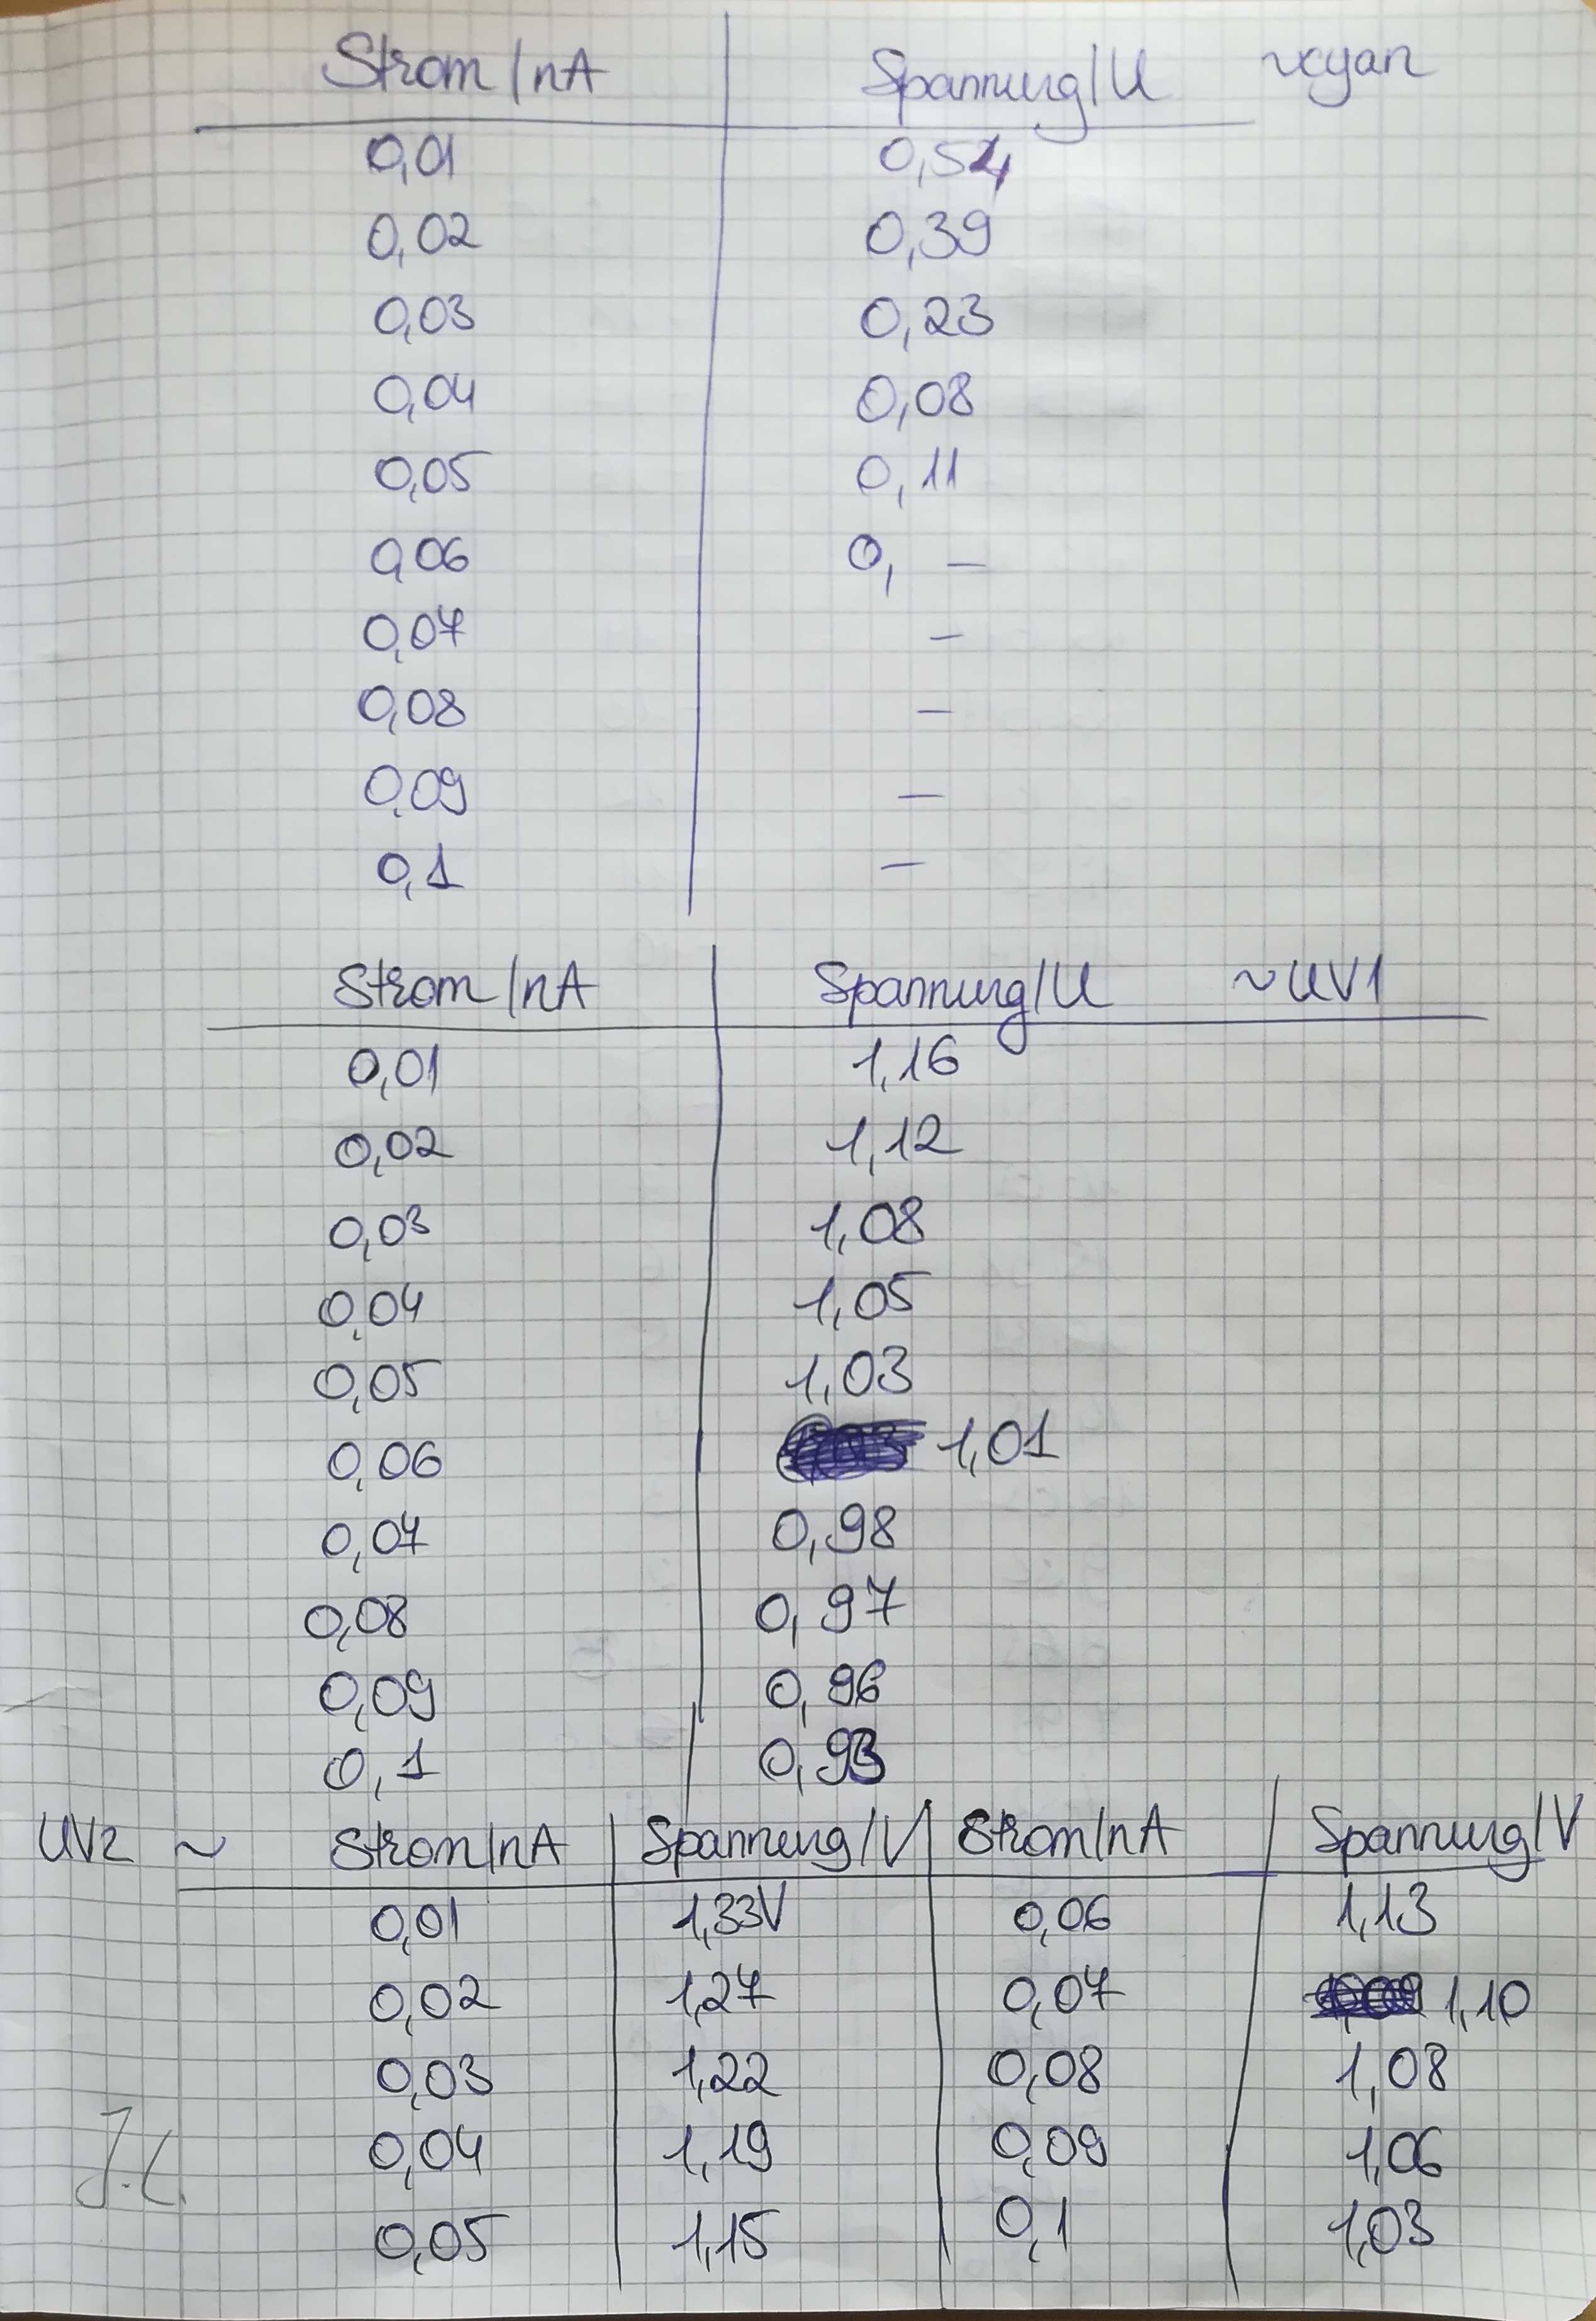 Strom/nA Spannung/U ~cyan
0,01 0,54
0,02 0,39
0,03 0,23
0,04 0,08
0,05 0,11
0,06 0, –
0,07 –
0,08 –
0,09 –
0,1 –
Strom/nA Spannung/U ~UV1
0,01 1,16
0,02 1,12
0,03 1,08
0,04 1,05
0,05 1,03
0,06 1,01
0,07 0,98
0,08 0,97
0,09 0,96
0,1 0,93
UV2 ~ Strom/nA Spannung/V Strom/nA Spannung/V
0,01 1,33V 0,06 1,13
0,02 1,27 0,07 1,10
0,03 1,22 0,08 1,08
0,04 1,19 0,09 1,06
0,05 1,15 0,1 1,03